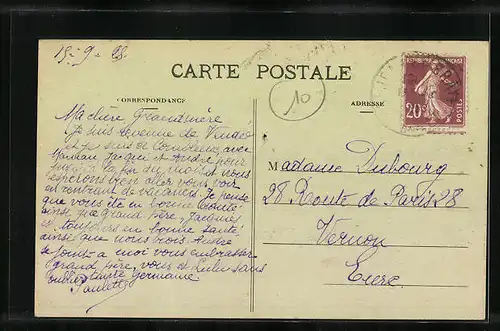 15-9-28
CARTE POSTALE
CORRESPONDANCE
ADRESSE
10
REPUBLIQUE FRANÇAISE
20c
POSTES
Ma chère Grand'mère
Je suis revenue de Vendée
et je suis à avec
Maman Jacques et André pour
jusqu'à la fin du mois et nous
espérons bien aller vous voir
en rentrant de vacances. Je pense
que vous êtes en bonne santé
ainsi que grand père, Jacques
est toujours en bonne santé
ainsi que nous trois
se joint à moi vous embrasser
grand père, vous et Lulu sans
oublier tante Germaine
Paulette
Madame Dubourg
28 Route de Paris 28
Vernon
Eure